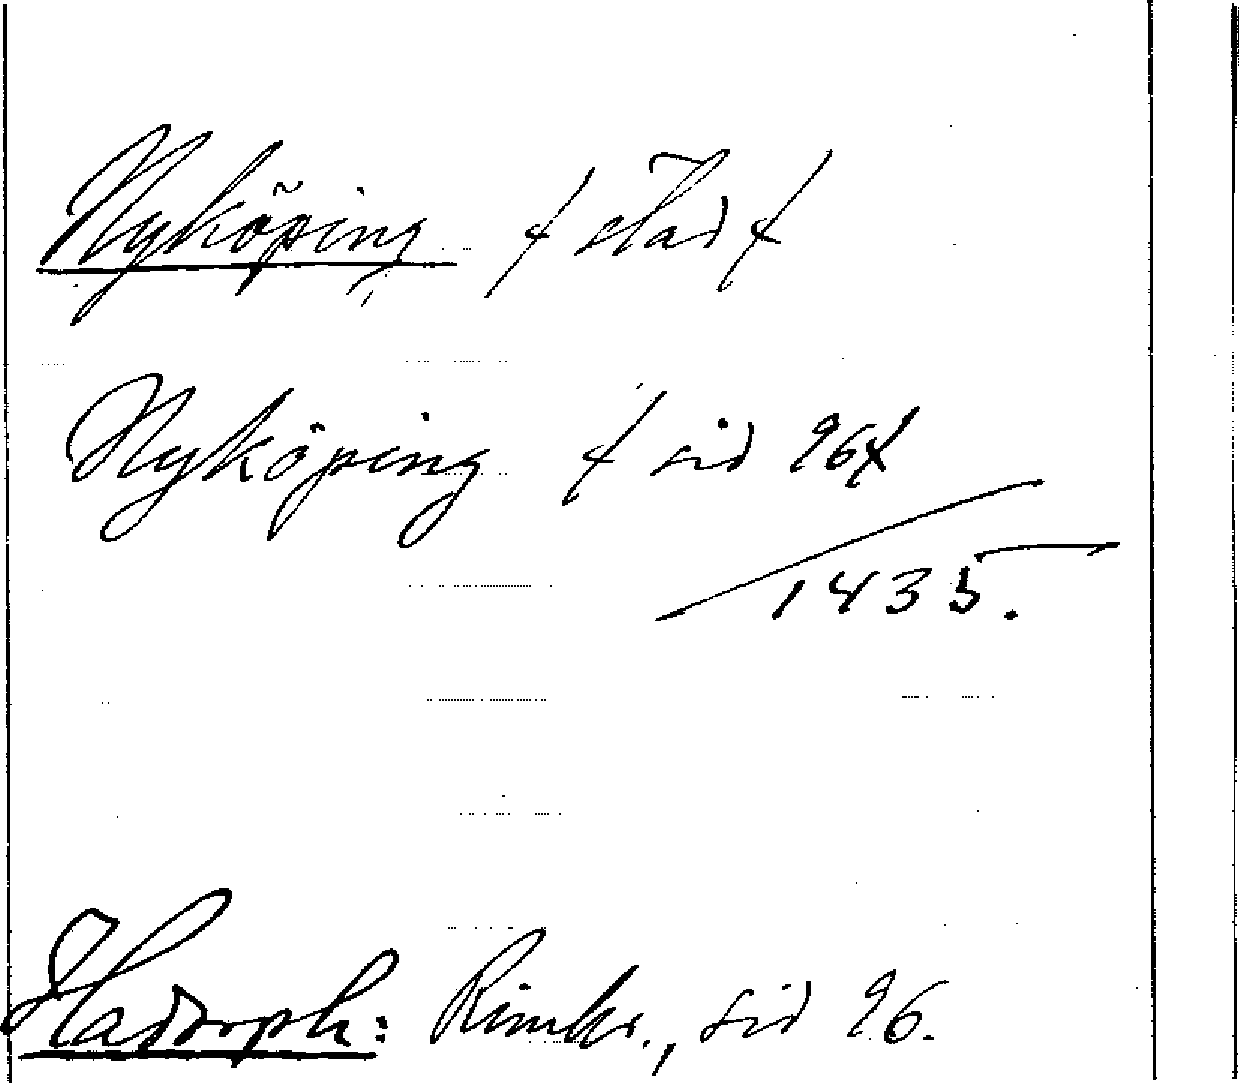 Nyköping /: stad :/
Nyköping /: sid 96 :/
1435.
Hadorph: Rimkr., sid 96.